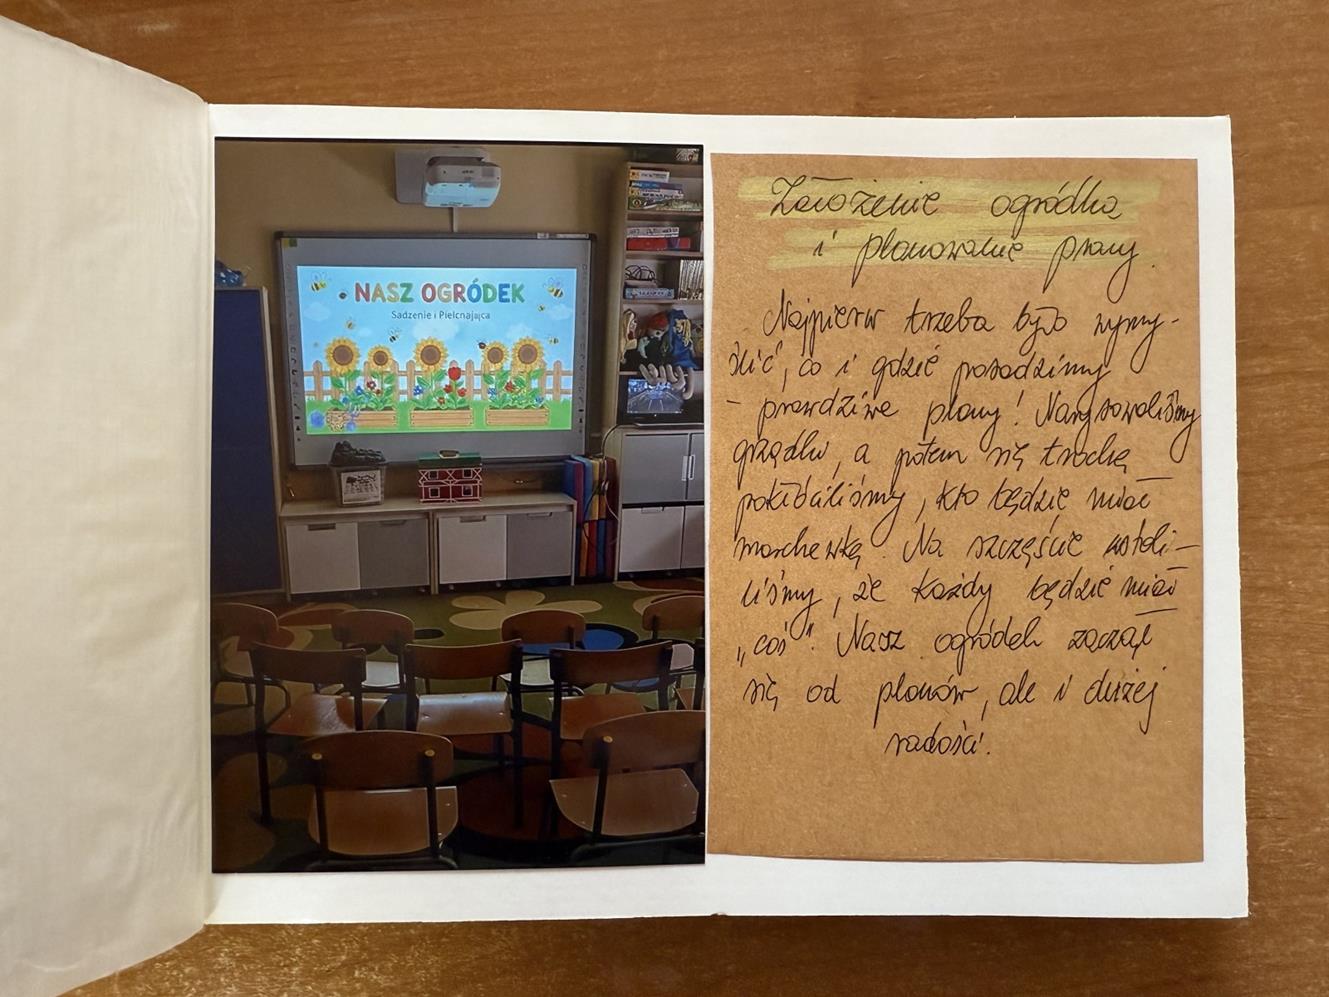 NASZ OGRÓDEK
Sadzenie i Pielcnajająca
Założenie ogródka
i planowanie pracy.
Najpierw trzeba było wymy-
ślić, co i gdzie posadzimy
- prawdziwe plany! Narysowaliśmy
grządki, a potem się trochę
pokłóciliśmy, kto będzie miał
marchewkę. Na szczęście ustali-
liśmy, że każdy będzie miał
„coś". Nasz ogródek zaczął
się od planów, ale i dużej
radości.